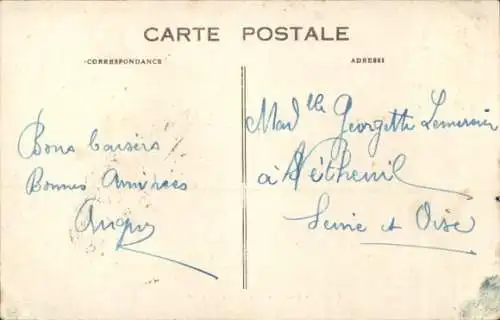 CARTE POSTALE
CORRESPONDANCE
ADRESSE
Bons baisers
Bonnes Années
Madlle Georgette Lemercier
à Vétheuil
Seine et Oise